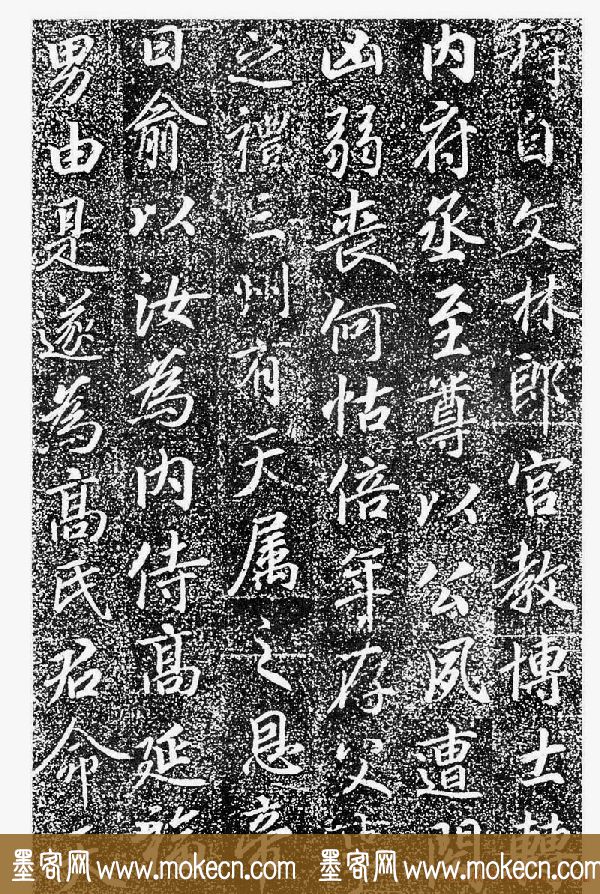 自文林郎宮教博士轉
内府丞至尊以公夙遭閔
凶弱喪何怙倍年存父
之禮三州有天属之恩帝
曰俞以汝為内侍高延福
男由是遂為高氏君命
墨客网 www.mokecn.com 墨客网 www.mokecn.com